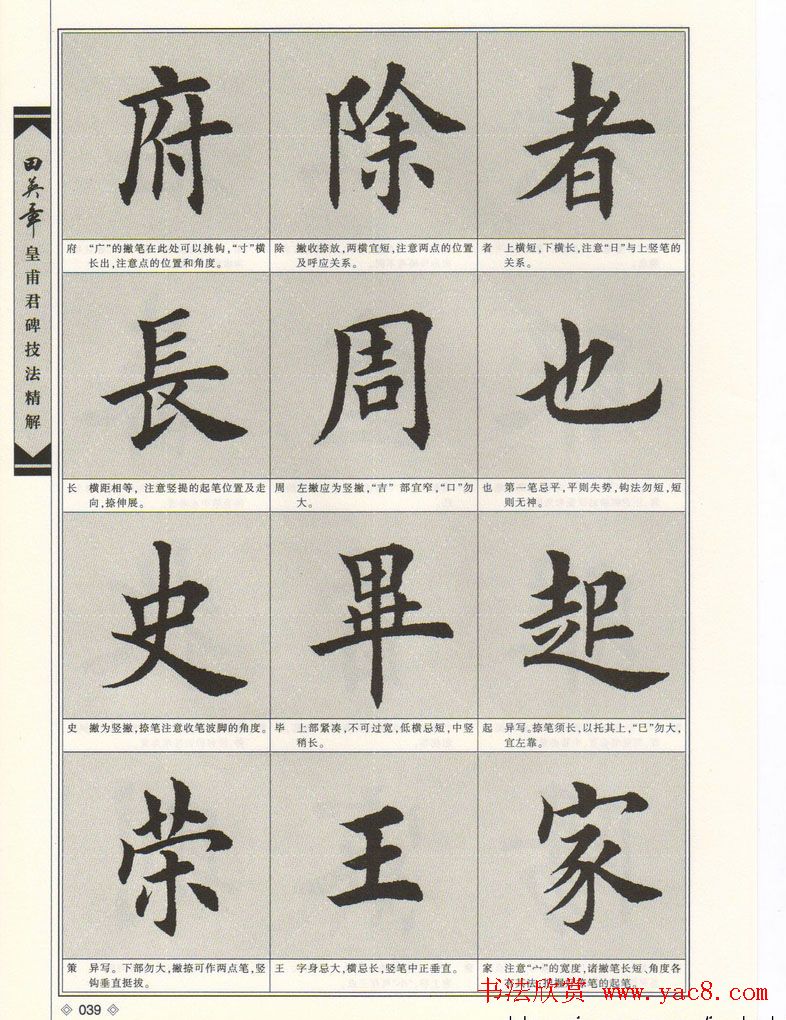 田英章
皇甫君碑技法精解
府 除 者
府 “广”的撇笔在此处可以挑钩,“寸”横
长出,注意点的位置和角度。
除 撇收捺放,两横宜短,注意两点的位置
及呼应关系。
者 上横短,下横长,注意“日”与上竖笔的
关系。
長 周 也
长 横距相等,注意竖提的起笔位置及走
向,捺伸展。
周 左撇应为竖撇,“吉”部宜窄,“口”勿
大。
也 第一笔忌平,平则失势,钩法勿短,短
则无神。
史 畢 起
史 撇为竖撇,捺笔注意收笔波脚的角度。
毕 上部紧凑,不可过宽,低横忌短,中竖
稍长。
起 异写。捺笔须长,以托其上,“巳”勿大,
宜左靠。
荣 王 家
策 异写。下部勿大,撇捺可作两点笔,竖
钩垂直挺拔。
王 字身忌大,横忌长,竖笔中正垂直。
家 注意“宀”的宽度,诸撇笔长短、角度各
笔的起笔。
书法欣赏 www.yac8.com
039